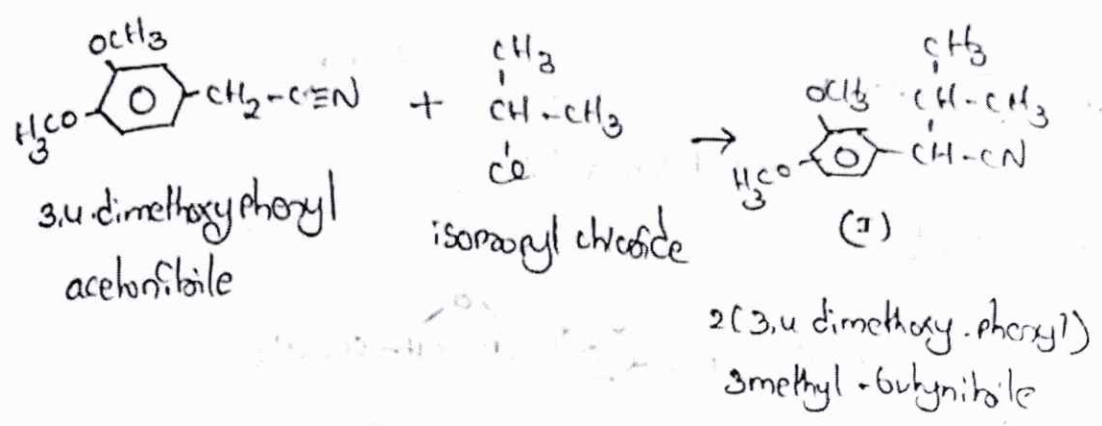 OCH3
H3CO
CH2-C≡N
+
CH3
CH-CH3
Cl
→
OCH3
H3CO
CH3
CH-CH3
CH-CN
(I)
3,4-dimethoxy phenyl
acetonitrile
isopropyl chloride
2(3,4 dimethoxy-phenyl)
3methyl-butynitrile